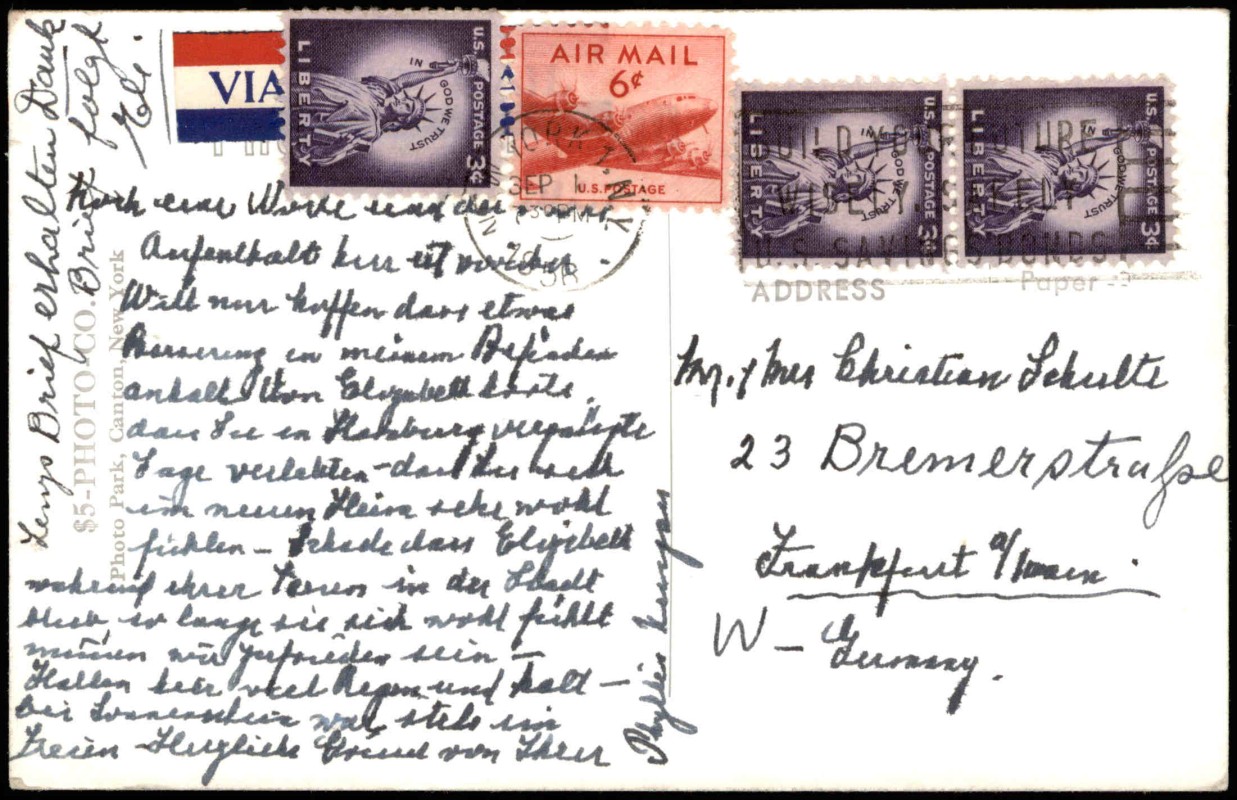 Lenzs Brief erhalten Dank
Brief folgt
VIA
LIBERTY
IN GOD WE TRUST
U.S. POSTAGE 3¢
AIR MAIL
6¢
U.S. POSTAGE
LIBERTY
IN GOD WE TRUST
U.S. POSTAGE 3¢
LIBERTY
IN GOD WE TRUST
U.S. POSTAGE 3¢
N.Y.
SEP 1
730PM
1958
BUILD YOUR FUTURE
WISELY SAFELY
U.S. SAVINGS BONDS
ADDRESS
Paper
$5-PHOTO CO.
Photo Park, Canton, New York
Noch eine Woche und der
Aufenthalt hier ist vorüber.
Will nur hoffen dass etwas
Besserung in meinem Befinden
anhält. Von Elizabeth hörte,
dass Sie in Hamburg vergnügte
Tage verlebten - dass Sie sich
im neuen Heim sehr wohl
fühlen - Schade dass Elizabeth
während ihrer Ferien in der Stadt
blieb, so lange sie sich wohl fühlt
müssen wir zufrieden sein -
Hatten hier viel Regen und kalt -
bei Sonnenschein war stets im
Freien - Herzliche Grüsse von Ihrer
Mr. & Mrs Christian Schulte
23 Bremerstraße
Frankfurt a/Main.
W - Germany.